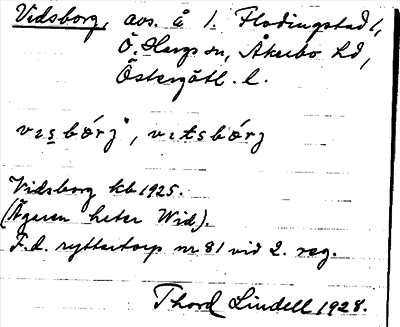 Vidsborg, avs. å 1. Flodingstad 1,
Ö. Hargs sn, Åkerbo hd,
Östergötl. l.
vɪsbórj, vɪtsbórj
Vidsborg kb 1925.
(Ägaren heter Wid).
F.d. ryttartorp nr 81 vid 2. reg.
Thord Lindell 1928.